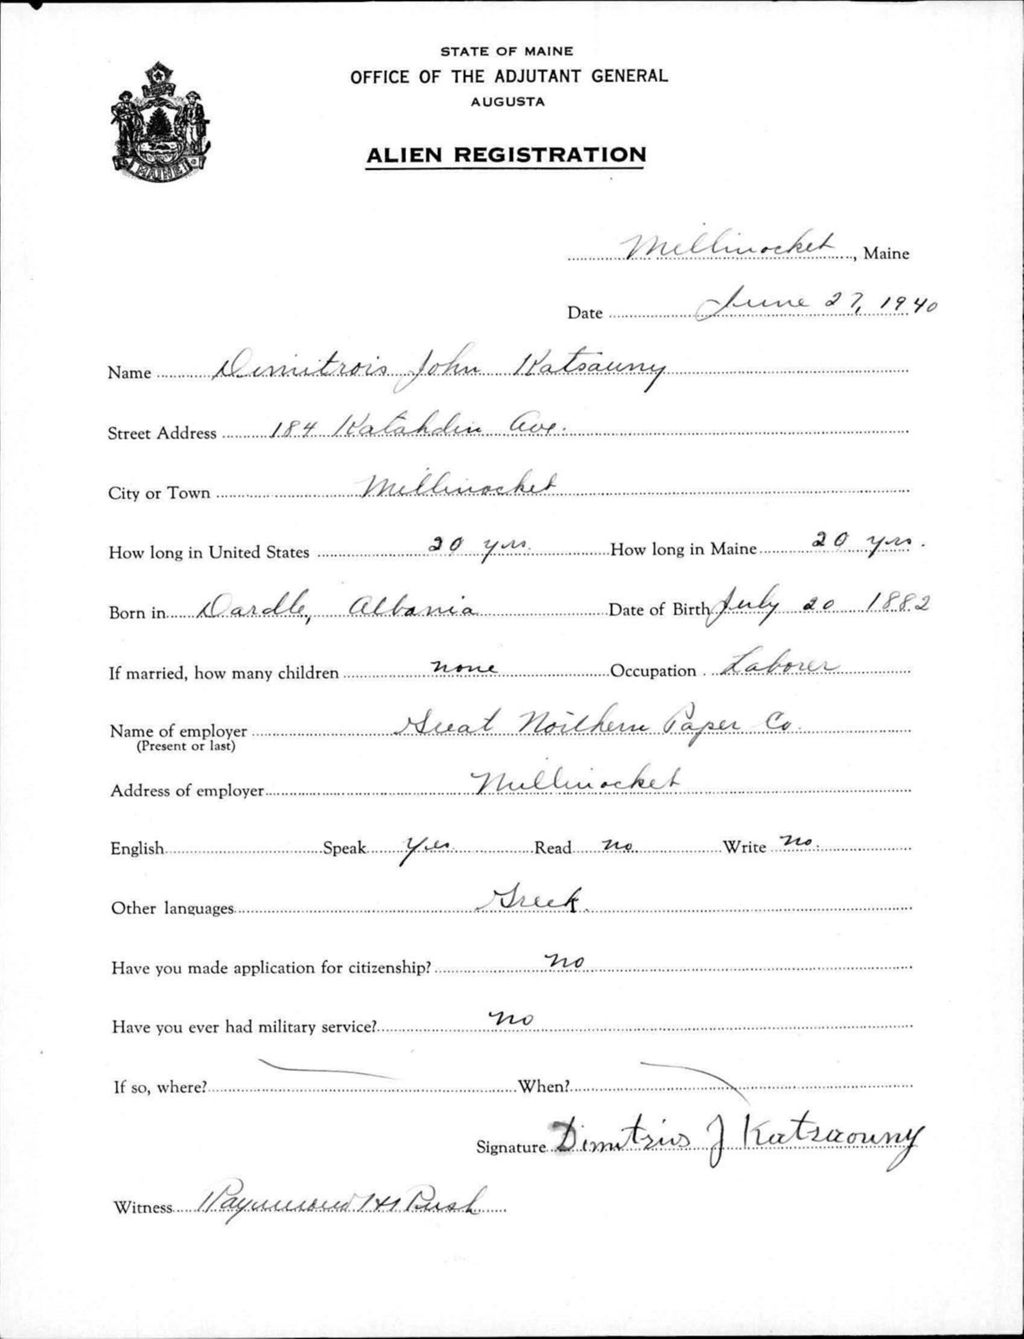 STATE OF MAINE
OFFICE OF THE ADJUTANT GENERAL
AUGUSTA
MAINE
ALIEN REGISTRATION
Millinocket, Maine
Date June 27, 1940
Name Dimitrois John Katsauny
Street Address 184 Katahdin Ave.
City or Town Millinocket
How long in United States 20 yrs. How long in Maine 20 yrs.
Born in Dardle, Albania Date of Birth July 20 1882
If married, how many children none Occupation Laborer
Name of employer Great Northern Paper Co.
(Present or last)
Address of employer Millinocket
English Speak Yes Read no. Write no.
Other languages Greek.
Have you made application for citizenship? no
Have you ever had military service? no
If so, where? When?
Signature Dimitrius J Katsaouny
Witness Raymond H Rush